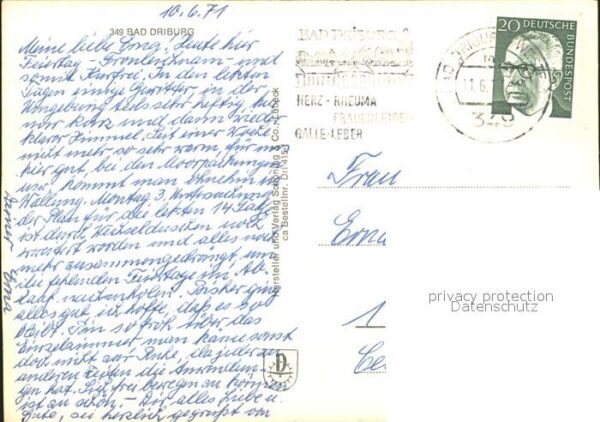 10.6.71
349 BAD DRIBURG
Meine liebe Erna! Heute hier
Feiertag - Fronleichnam - und
somit Kurfrei. In den letzten
Tagen einige Gewitter, in der
Umgebung teils sehr heftig, hier
nur kurz und dann wieder
klarer Himmel. Seit einer Woche
nicht mehr so sehr warm, für mi
hier gut, bei den Moorpackungen
usw. kommt man ohnehin in
Wallung. Montag 3. Untersuchung
der Plan für die letzten 14 Tage
ist durch Wechselduschen noch
erweitert worden und alles noch
mehr zusammengedrängt, um
die fehlenden Feiertage im Ab-
lauf nachzuholen. Bisher ging
alles gut, ich hoffe, daß es so
bleibt. Bin so froh über das
Einzelzimmer, man kann sonst
doch nicht zur Ruhe, da jeder zu
anderen Zeiten die Anwendun-
gen hat. Sich frei bewegen zu können
ist zu schön. - Dir alles Liebe u.
Gute, sei herzlich gegrüßt von
Erna
Hersteller und Verlag Schöning & Co., Lübeck
Bestellnr. Dri
BAD DRIBURG
HERZ - RHEUMA
FRAUENLEIDEN
GALLE-LEBER
349
20 DEUTSCHE BUNDESPOST
Frau
Erna
1
D
privacy protection
Datenschutz